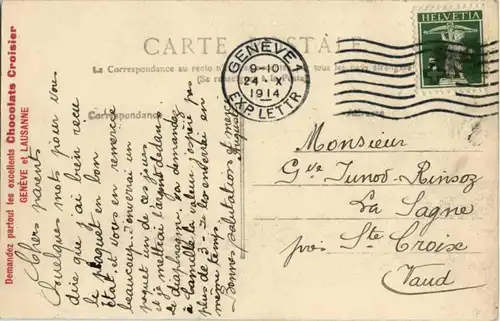 Demandez partout les excellents Chocolats Croisier
GENÈVE et LAUSANNE
CARTE POSTALE
La Correspondance au recto n'est pas tous les pays étrangers
(Se renseigner à la Poste)
Correspondance
Adresse
HELVETIA
GENÈVE 1
9-10
24 X
1914
EXP. LETTR.
Chers parents
Quelques mots pour vous
dire que j'ai bien reçu
le paquet en bon
état et vous en remercie
beaucoup. J'enverrai un
paquet un de ces jours
et je mettrai l'argent dedans.
Le diaphragme, va demandez
à Camille la valeur, j'espère pas
plus de 3.- Je les enverrai en
même temps.
Bonnes salutations et merci
Monsieur
Gve Junod-Rinsoz
La Sagne
près Ste Croix
Vaud